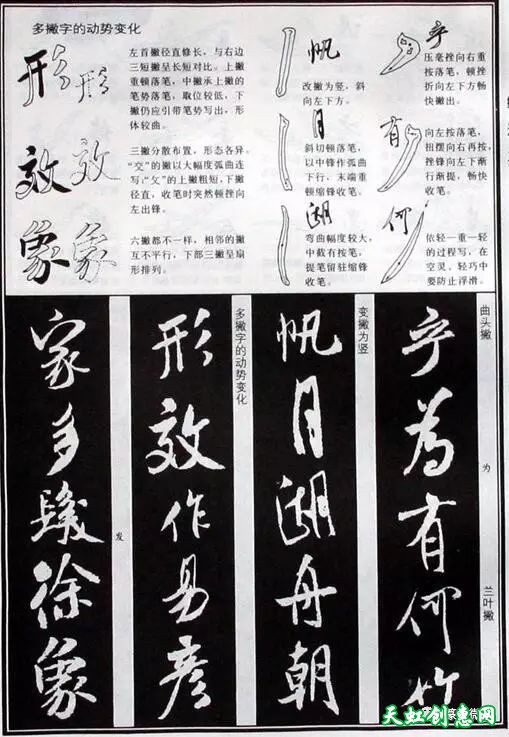 多撇字的动势变化
形
左首撇径直修长，与右边
三短撇呈长短对比。上撇
重顿落笔，中撇承上撇的
笔势落笔，取位较低，下
撇仍应引带笔势写出，形
体较曲。
效
三撇分散布置，形态各异。
“交”的撇以大幅度弧曲连
写；“攵”的上撇粗短，下撇
径直，收笔时突然顿挫向
左出锋。
象
六撇都不一样，相邻的撇
互不平行，下部三撇呈扇
形排列。
帆
改撇为竖，斜
向左下方。
月
斜切顿落笔，
以中锋作弧曲
下行，末端重
顿缩锋收笔。
湖
弯曲幅度较大，
中截有按笔，
提笔留驻缩锋
收笔。
乎
压毫挫向右重
按落笔，顿挫
折向左下方畅
快撇出。
有
向左按落笔，
扭摆向右再按，
挫锋向左下渐
行渐提，畅快
收笔。
何
依轻—重—轻
的过程写，在
空灵、轻巧中
要防止浮滑。
曲头撇
为
兰叶撇
乎为有何竹
变撇为竖
帆月湖舟朝
多撇字的动势变化
形效作易彦
发
家多徐象
天虹创意网